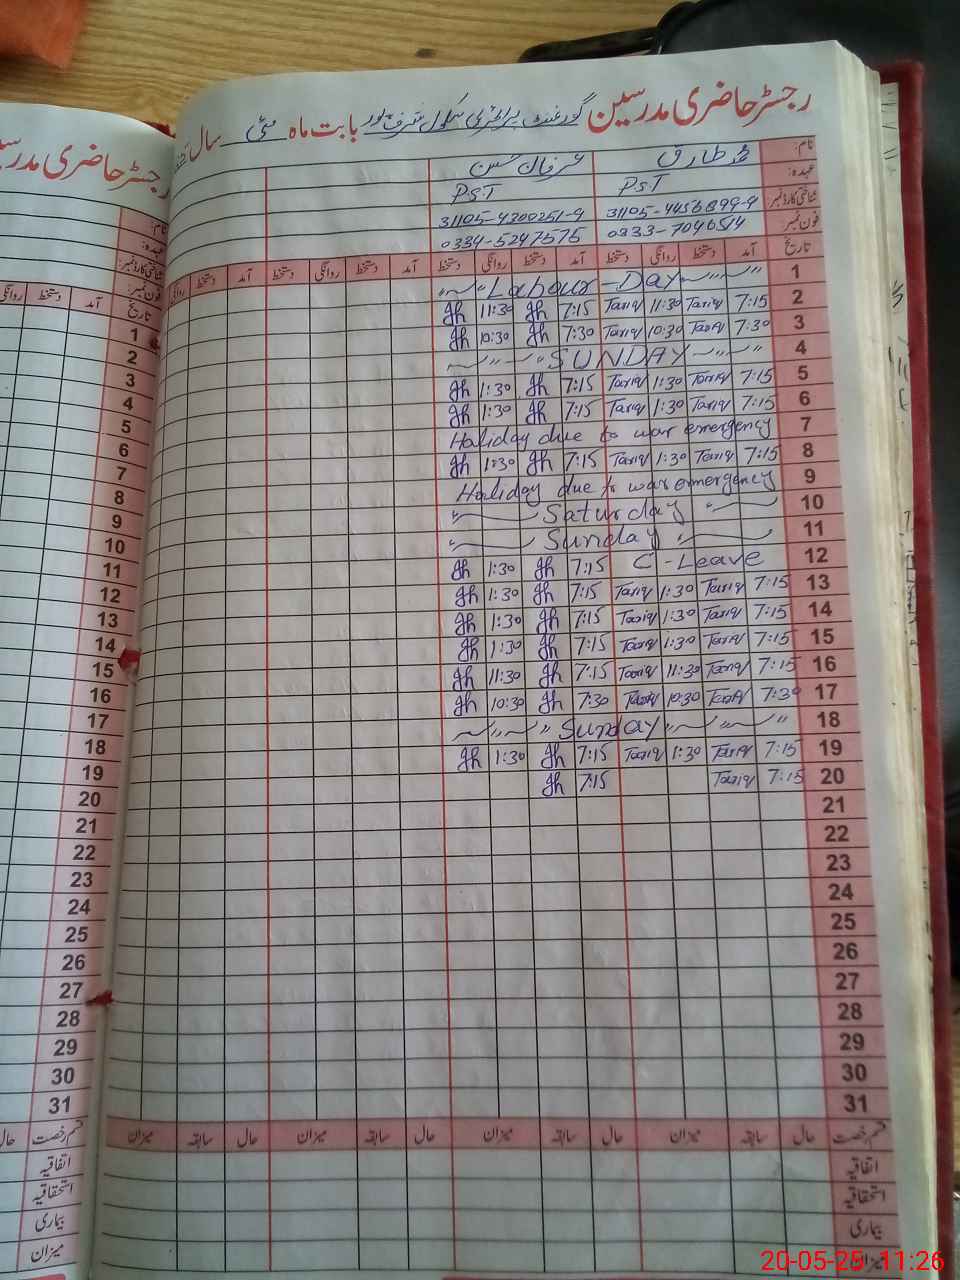 رجسٹر حاضری مدرسین گورنمنٹ پرائمری سکول شرف پور بابت ماہ مئی سال
نام: محمد طارق عرفان حسن
عہدہ: PST PST
شناختی کارڈ نمبر: 31105-4300251-9
فون نمبر: 0333-7046514 0334-5247575
تاریخ آمد دستخط روانگی دستخط آمد دستخط روانگی دستخط آمد دستخط روانگی دستخط آمد دستخط روانگی
1 Labour Day
2 7:15 Tariq 11:30 Tariq 7:15 Jh 11:30 Jh
3 7:30 Tariq 10:30 Tariq 7:30 Jh 10:30 Jh
4 SUNDAY
5 7:15 Tariq 1:30 Tariq 7:15 Jh 1:30 Jh
6 7:15 Tariq 1:30 Tariq 7:15 Jh 1:30 Jh
7 Haliday due to war emergency
8 7:15 Tariq 1:30 Tariq 7:15 Jh 1:30 Jh
9 Haliday due to war emergency
10 Saturday
11 Sunday
12 C-Leave 7:15 Jh 1:30 Jh
13 7:15 Tariq 1:30 Tariq 7:15 Jh 1:30 Jh
14 7:15 Tariq 1:30 Tariq 7:15 Jh 1:30 Jh
15 7:15 Tariq 1:30 Tariq 7:15 Jh 1:30 Jh
16 7:15 Tariq 11:30 Tariq 7:15 Jh 11:30 Jh
17 7:30 Tariq 10:30 Tariq 7:30 Jh 10:30 Jh
18 Sunday
19 7:15 Tariq 1:30 Tariq 7:15 Jh 1:30 Jh
20 7:15 Tariq 7:15 Jh
21
22
23
24
25
26
27
28
29
30
31
قسم رخصت حال سابقہ میزان حال سابقہ میزان حال سابقہ میزان حال سابقہ میزان
اتفاقیہ
استحقاقیہ
بیماری
میزان
رجسٹر حاضری
نام:
عہدہ:
شناختی کارڈ نمبر:
فون نمبر:
تاریخ آمد دستخط روانگی
1
2
3
4
5
6
7
8
9
10
11
12
13
14
15
16
17
18
19
20
21
22
23
24
25
26
27
28
29
30
31
قسم رخصت حال
اتفاقیہ
استحقاقیہ
بیماری
میزان
20-05-25 11:26